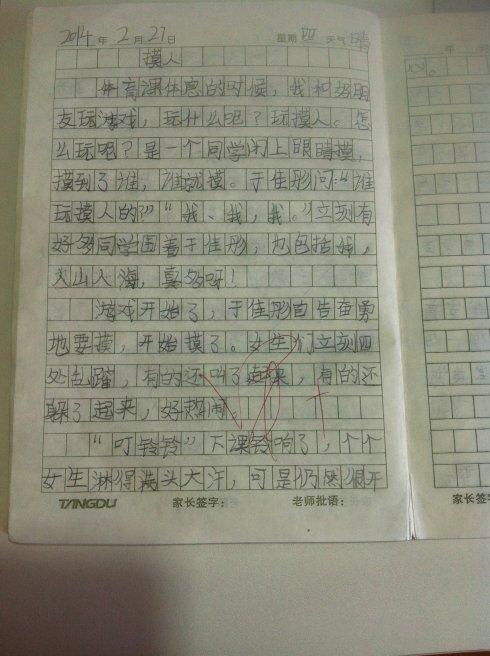 2014 年 2 月 27 日 星期 四 天气 晴
摸人
体育课休息的时候，我和好朋
友玩游戏，玩什么呢？玩摸人。怎
么玩呢？是一个同学闭上眼睛摸，
摸到了谁，谁就摸。于佳彤问：“谁
玩摸人的？”“我、我，我。”立刻有
好多同学围着于佳彤，也包括，
人山人海，真多呀！
游戏开始了，于佳彤自告奋勇
地要摸，开始摸了。女生们立刻四
处乱蹿，有的还叫了起来，有的还
躲了起来，好热闹。
“叮铃铃”下课铃响了，个个
女生淋得满头大汗，可是仍然很开
TANGDU 家长签字： 老师批语：
年 月
心。